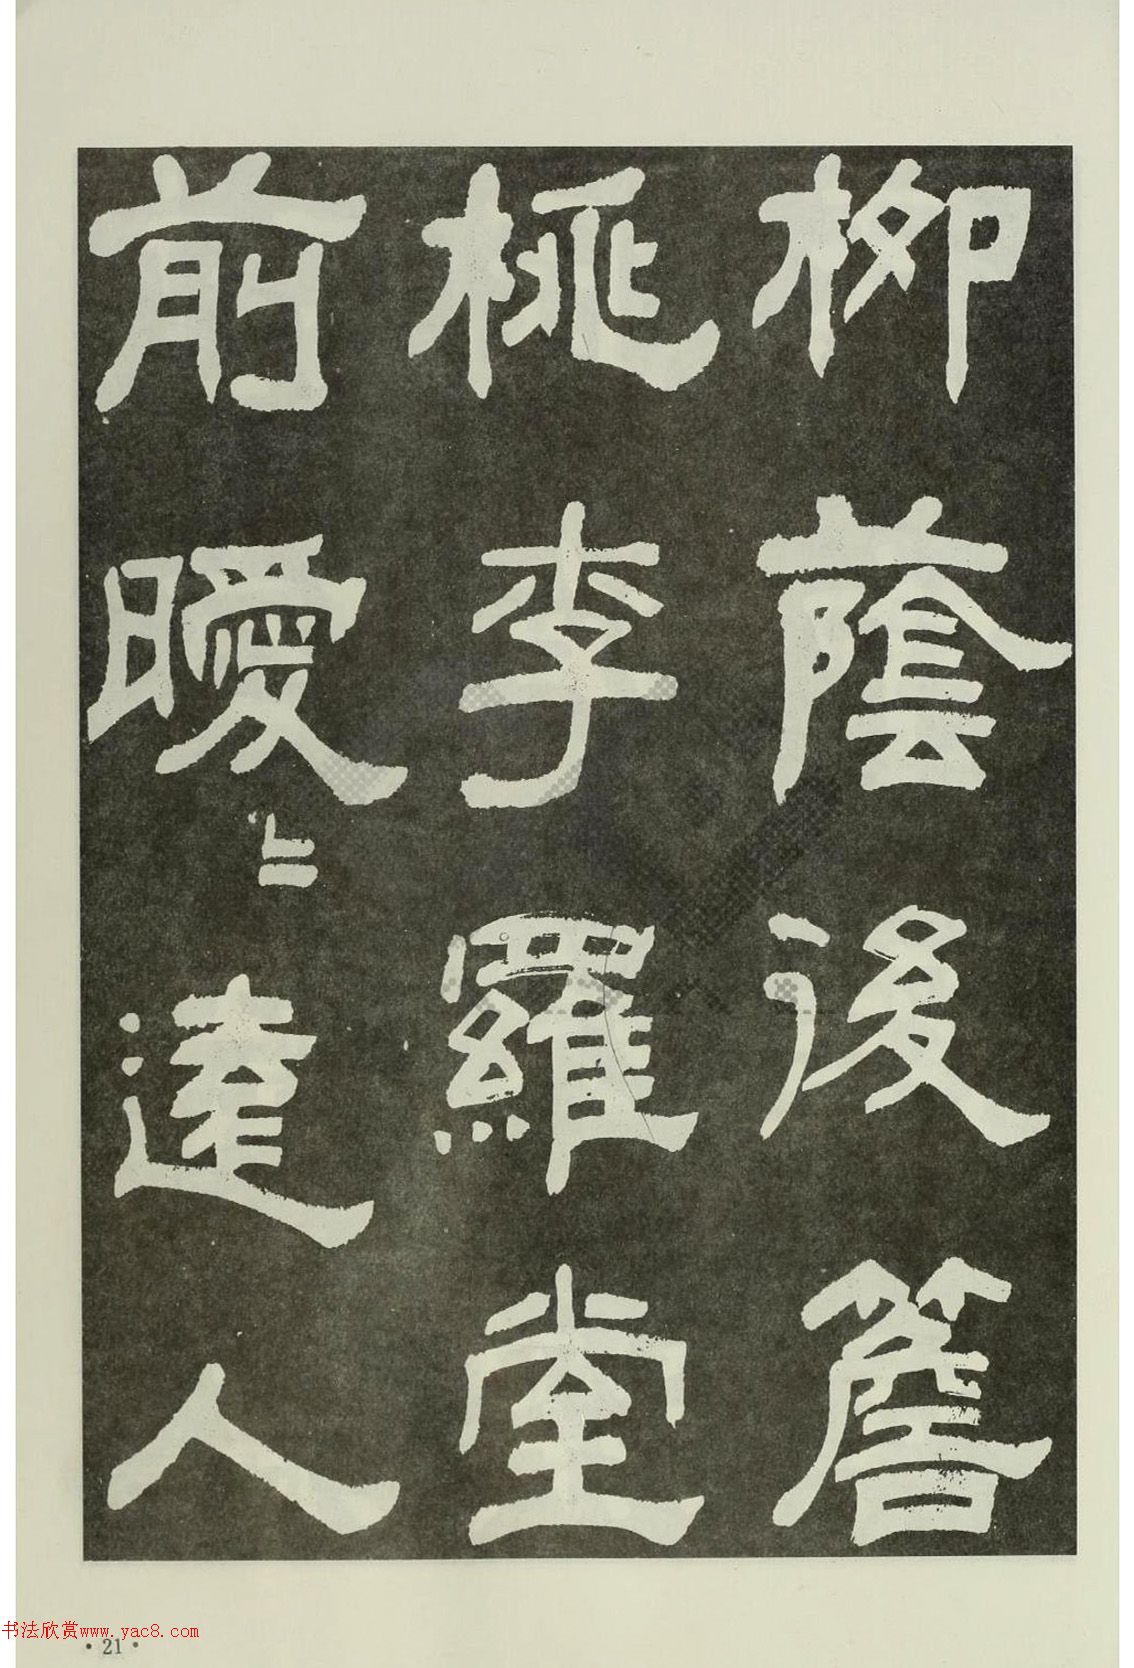 柳蔭後簷
桃李羅堂
前曖〻遠人
书法欣赏www.yac8.com
·21·